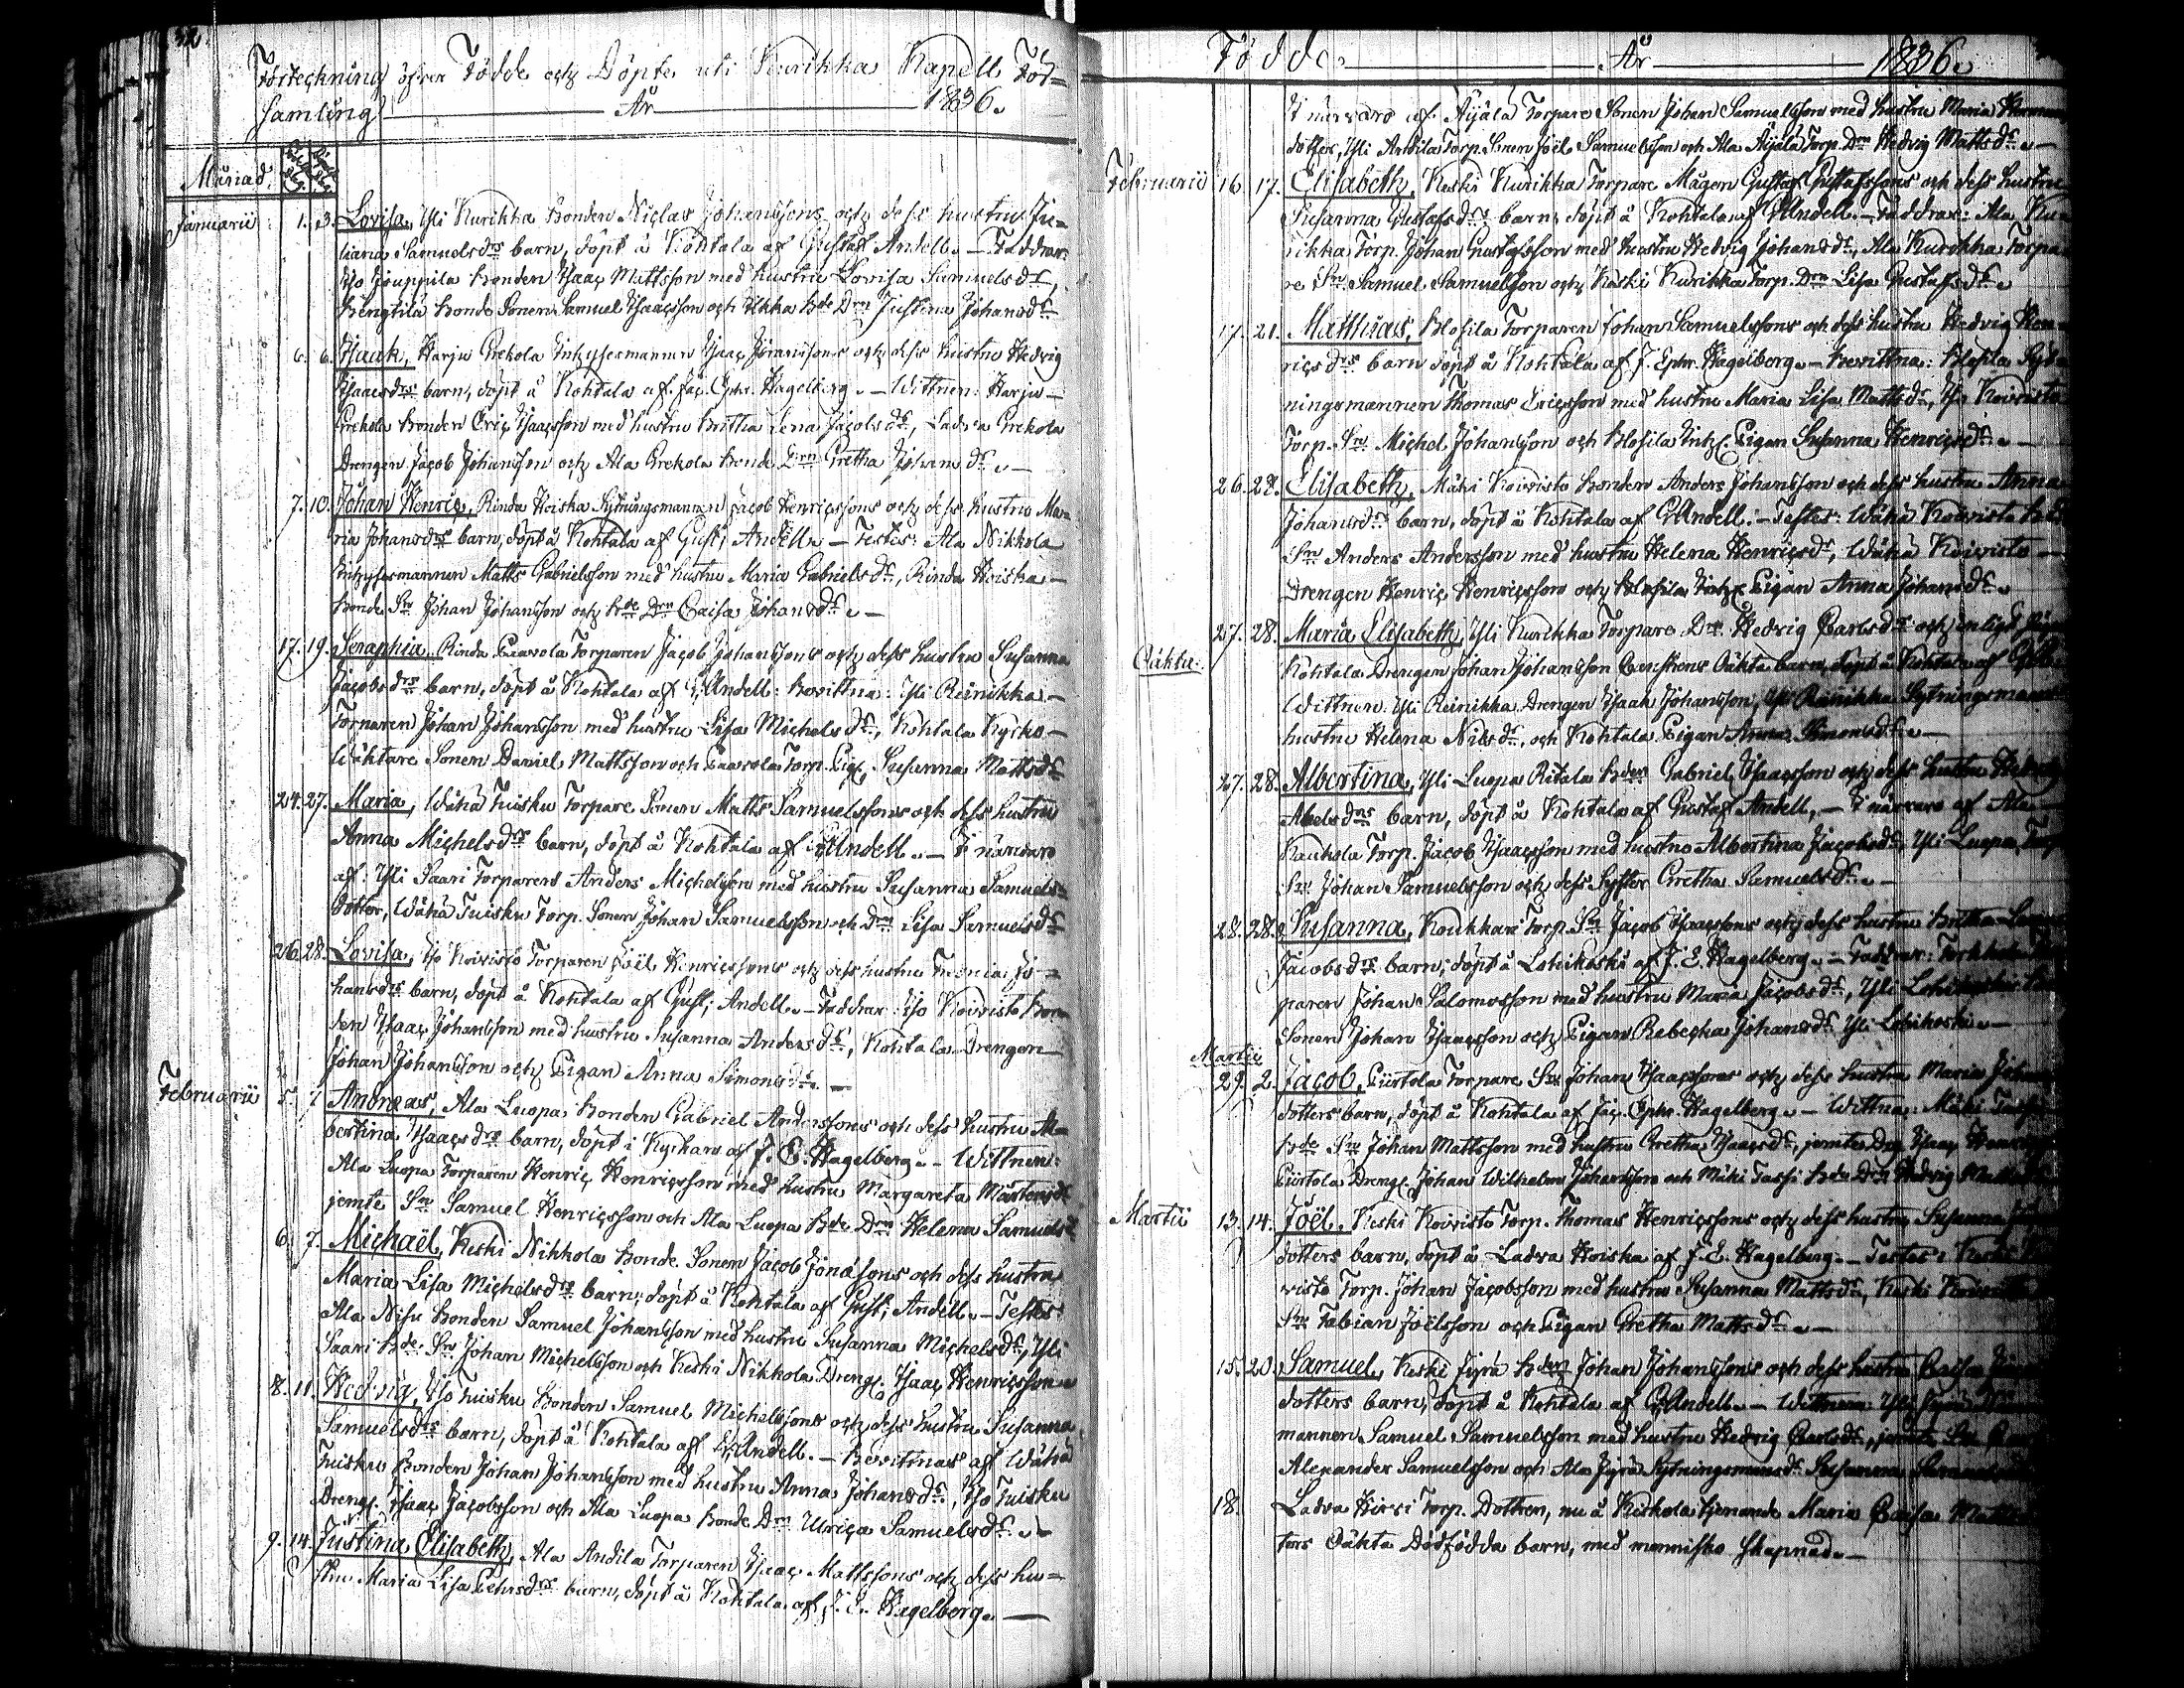 Förteckning öfver Födde och Döpte uti Kurikka Kapell För=
samling År 1836.
Månad.
Januarii 1. 3. Lovisa, Yli Kurikka Bonden Niclas Johanssons och dess hustru Ju=
liana Samuelsdrs barn, döpt å Kohtala af Gustaf Andell. — Faddrar:
Iso Jouppila Bonden Isaac Mattsson med hustru Lovisa Samuelsdr,
Bengtilä Bonde Sonen Samuel Isaacsson och Ukka Bde Drn Justina Johansdr
6. 6. Isaak, Harju Grekola Inhysesmannen Isaac Jöranssons och dess hustru Hedvig
Isaacsdrs barn, döpt å Kohtala af Jac. Ephr. Hagelberg. — Wittnen: Harju —
Grekola Bonden Eric Isaacsson med hustru Britha Lena Jacobsdr, Ladva Grekola
Drengen Jacob Johansson och Ala Grekola Bonde Drn Gretha Johansdr. —
7. 10. Johan Henric, Rinda Hoiska Sytningsmannen Jacob Henricssons och dess hustru Ma=
ria Johansdrs barn, döpt å Kohtala af Gust; Andell. — Testes: Ala Nikkola
Inhysesmannen Matts Gabrielsson med hustru Maria Gabrielsdr, Rinda Hoiska —
Bonde Sn Johan Johansson och Bde Drn Caisa Johansdr. —
17. 19. Seraphia, Rinda Paavola Torparen Jacob Johanssons och dess hustru Susanna
Jacobsdrs barn, döpt å Kohtala af G. Andell: Bevittna: Yli Reinikka —
Torparen Johan Johansson med hustru Lisa Michelsdr, Kohtala Kyrko —
Wäktare Sonen Daniel Mattsson och Paavola Torp. Pig. Susanna Mattsdr
24. 27. Maria, Wähä Tuisku Torpare Sonen Matts Samuelssons och dess hustru
Anna Michelsdrs barn, döpt å Kohtala af G. Andell. — I närvaro
af: Yli Saari Torparens Anders Michelsson med hustru Susanna Samuels=
dotter, Wähä Tuisku Torp. Sonen Johan Samuelsson och Drn Lisa Samuelsdr
26. 28. Lovisa, Iso Koivisto Torparen Joël Henricssons och dess hustru Jo=
hansdrs barn, döpt å Kohtala af Gust; Andell. — Faddrar: Iso Koivisto Bon
den Isaac Johansson med hustru Susanna Andersdr, Kohtala Drengen
Johan Johansson och Pigan Anna Simonsdr. —
Februarii 5. 7 Andreas, Ala Luopa Bonden Gabriel Anderssons och dess hustru Al
bertina Isaacsdrs barn, döpt i Kyrkan af J. E. Hagelberg. — Wittnen:
Ala Luopa Torparen Henric Henricsson med hustru Margareta Mårtensdr
jemte Sn Samuel Henricsson och Ala Luopa Bde Drn Helena Samuelsdr
6. 7. Michaël, Keski Nikkola Bonde Sonen Jacob Jonassons och dess hustru
Maria Lisa Michelsdrs barn, döpt å Kohtala af Gust; Andell. — Testes:
Ala Nisu Bonden Samuel Johansson med hustru Susanna Michelsdr, Yli
Saari Bde Sn Johan Michelsson och Keski Nikkola Dreng. Isaac Henricsson.
8. 11. Hedvig, Iso Tuisku Bonden Samuel Michelssons och dess hustru Susanna
Samuelsdrs barn, döpt å Kohtala af G. Andell. — Bevittnas af Wähä
Tuisku Bonden Johan Johansson med hustru Anna Johansdr, Iso Tuisku
Dreng. Isaac Jacobsson och Ala Luopa Bonde Drn Ulrica Samuelsdr. —
9. 14. Justina Elisabeth, Ala Andila Torparen Isaac Mattssons och dess hu=
stru Maria Lisa Pehrsdrs barn, döpt å Kohtala af J. E. Hagelberg. —
Födde År 1836.
I närvaro af Äijälä Torpare Sonen Johan Samuelsson med hustru Maria
dotter, Yli Andila Torp. Sonen Joël Samuelsson och Ala Äijälä Torp. Drn Hedvig Mattsdr. —
Februarii 16. 17. Elisabeth, Keski Kurikka Torpare Mågen Gustaf Gustafssons och dess hustru
Susanna Gustafsdrs barn, döpt å Kohtala af G. Andell. — Faddrar: Ala Ku
rikka Torp. Johan Gustafsson med hustru Hedvig Johansdr, Ala Kurikka Torpa
re Sn Samuel Samuelsson och Keski Kurikka Torp. Drn Lisa Gustafsdr.
17. 21. Matthias, Blosila Torparen Johan Samuelssons och dess hustru Hedvig Hen
ricsdrs barn döpt å Kohtala af J. Ephr. Hagelberg. — Bevittna: Blosila Syt
ningsmannen Thomas Ericsson med hustru Maria Lisa Mattsdr, Iso Koivisto
Torp. Sn Michel Johansson och Blosila Inh. Pigan Susanna Henricsdr. —
26. 27. Elisabeth, Mäki Koivisto Bonden Anders Johansson och dess hustru Anna
Johansdrs barn, döpt å Kohtala af G. Andell. — Testes: Wähä Koivisto
Sn Anders Andersson med hustru Helena Henricsdr, Wähä Koivisto —
Drengen Henric Henricsson och Blosila Inh. Pigan Anna Johansdr.
Oäkta. 27. 28. Maria Elisabeth, Yli Kurikka Torpare Drn Hedvig Carlsdrs och enligt
Kohtala Drengen Johan Johansson Oäkta barn, döpt å Kohtala af
Wittnen: Yli Reinikka Drengen Isaak Johansson, Yli Reinikka Sytningsmans
hustru Helena Nilsdr, och Kohtala Pigan Anna Simonsdr. —
27. 28. Albertina, Yli Luopa Ritala Bden Gabriel Isaacsson och dess hustru
Abelsdrs barn, döpt å Kohtala af Gustaf Andell. — I närvaro af Ala
Kauhola Torp. Jacob Isaacsson med hustru Albertina Jacobsdr, Yli Luopa
Sn Johan Samuelsson och dess Syster Gretha Samuelsdr. —
28. 28. Susanna, Koukkari Torp. Sn Jacob Isaacssons och dess hustru Britha
Jacobsdrs barn, döpt å Lohikoski af J. E. Hagelberg. — Faddrar:
paren Johan Salomonsson med hustru Maria Jacobsdr, Yli
Sonen Johan Isaacsson och Pigan Rebecka Johansdr Yli Lohikoski. —
Martii
29. 2. Jacob, Piirtola Torpare Sn Johan Isaacssons och dess hustru Maria
dotters barn, döpt å Kohtala af Jac. Ephr. Hagelberg. — Wittna: Mäki
Bde Sn Johan Mattsson med hustru Gretha Isaacsdr, jemte Isaac
Piirtola Dreng. Johan Wilhelm Johansson och Mäki Bde Drn Hedvig
Martii 13. 14. Joël, Keski Koivisto Torp. Thomas Henricssons och dess hustru Susanna
dotters barn, döpt å Ladva Hoiska af J. E. Hagelberg. — Testes: Keski
visto Torp. Johan Jacobsson med hustru Susanna Mattsdr, Keski
Sn Fabian Joëlsson och Pigan Gretha Mattsdr. —
15. 20. Samuel, Keski Jyrä Bden Johan Johanssons och dess hustru Caisa
dotters barn, döpt å Kohtala af G. Andell. — Wittnen: Yli
mannen Samuel Samuelsson med hustru Hedvig Carlsdr, jemte
Alexander Samuelsson och Ala Jyrä Sytningsmansdr Susanna
18. Ladva Torp. Dottren, nu å Keskola tjenande Maria Caisa
ters Oäkta Dödfödda barn, med mennisko skapnad. —